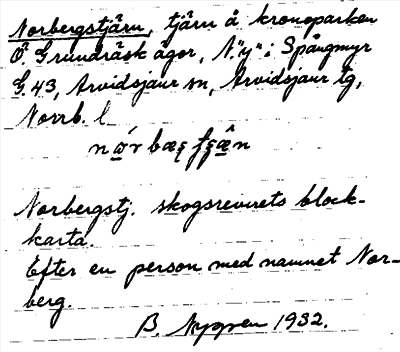 Norbergstjärn, tjärn å kronoparken
Ö. Grundräsk ägor, N. "y" i Spångmyr
G. 43, Arvidsjaur sn, Arvidsjaur tg,
Norrb. l
Norbergstj. skogsrevirets block-
karta.
Efter en person med namnet Nor-
berg.
B. Nygren 1932.